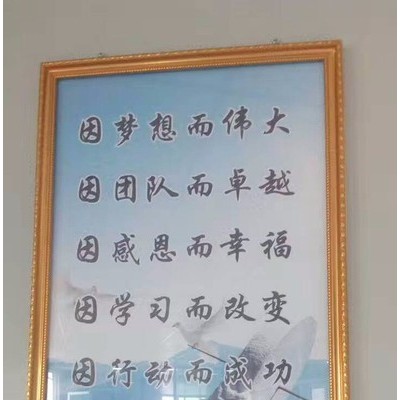 因梦想而伟大
因团队而卓越
因感恩而幸福
因学习而改变
因行动而成功